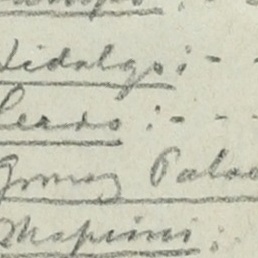 Hidalgo:- -
Lerdo:- - -
Gomez Palac
Mapimi: